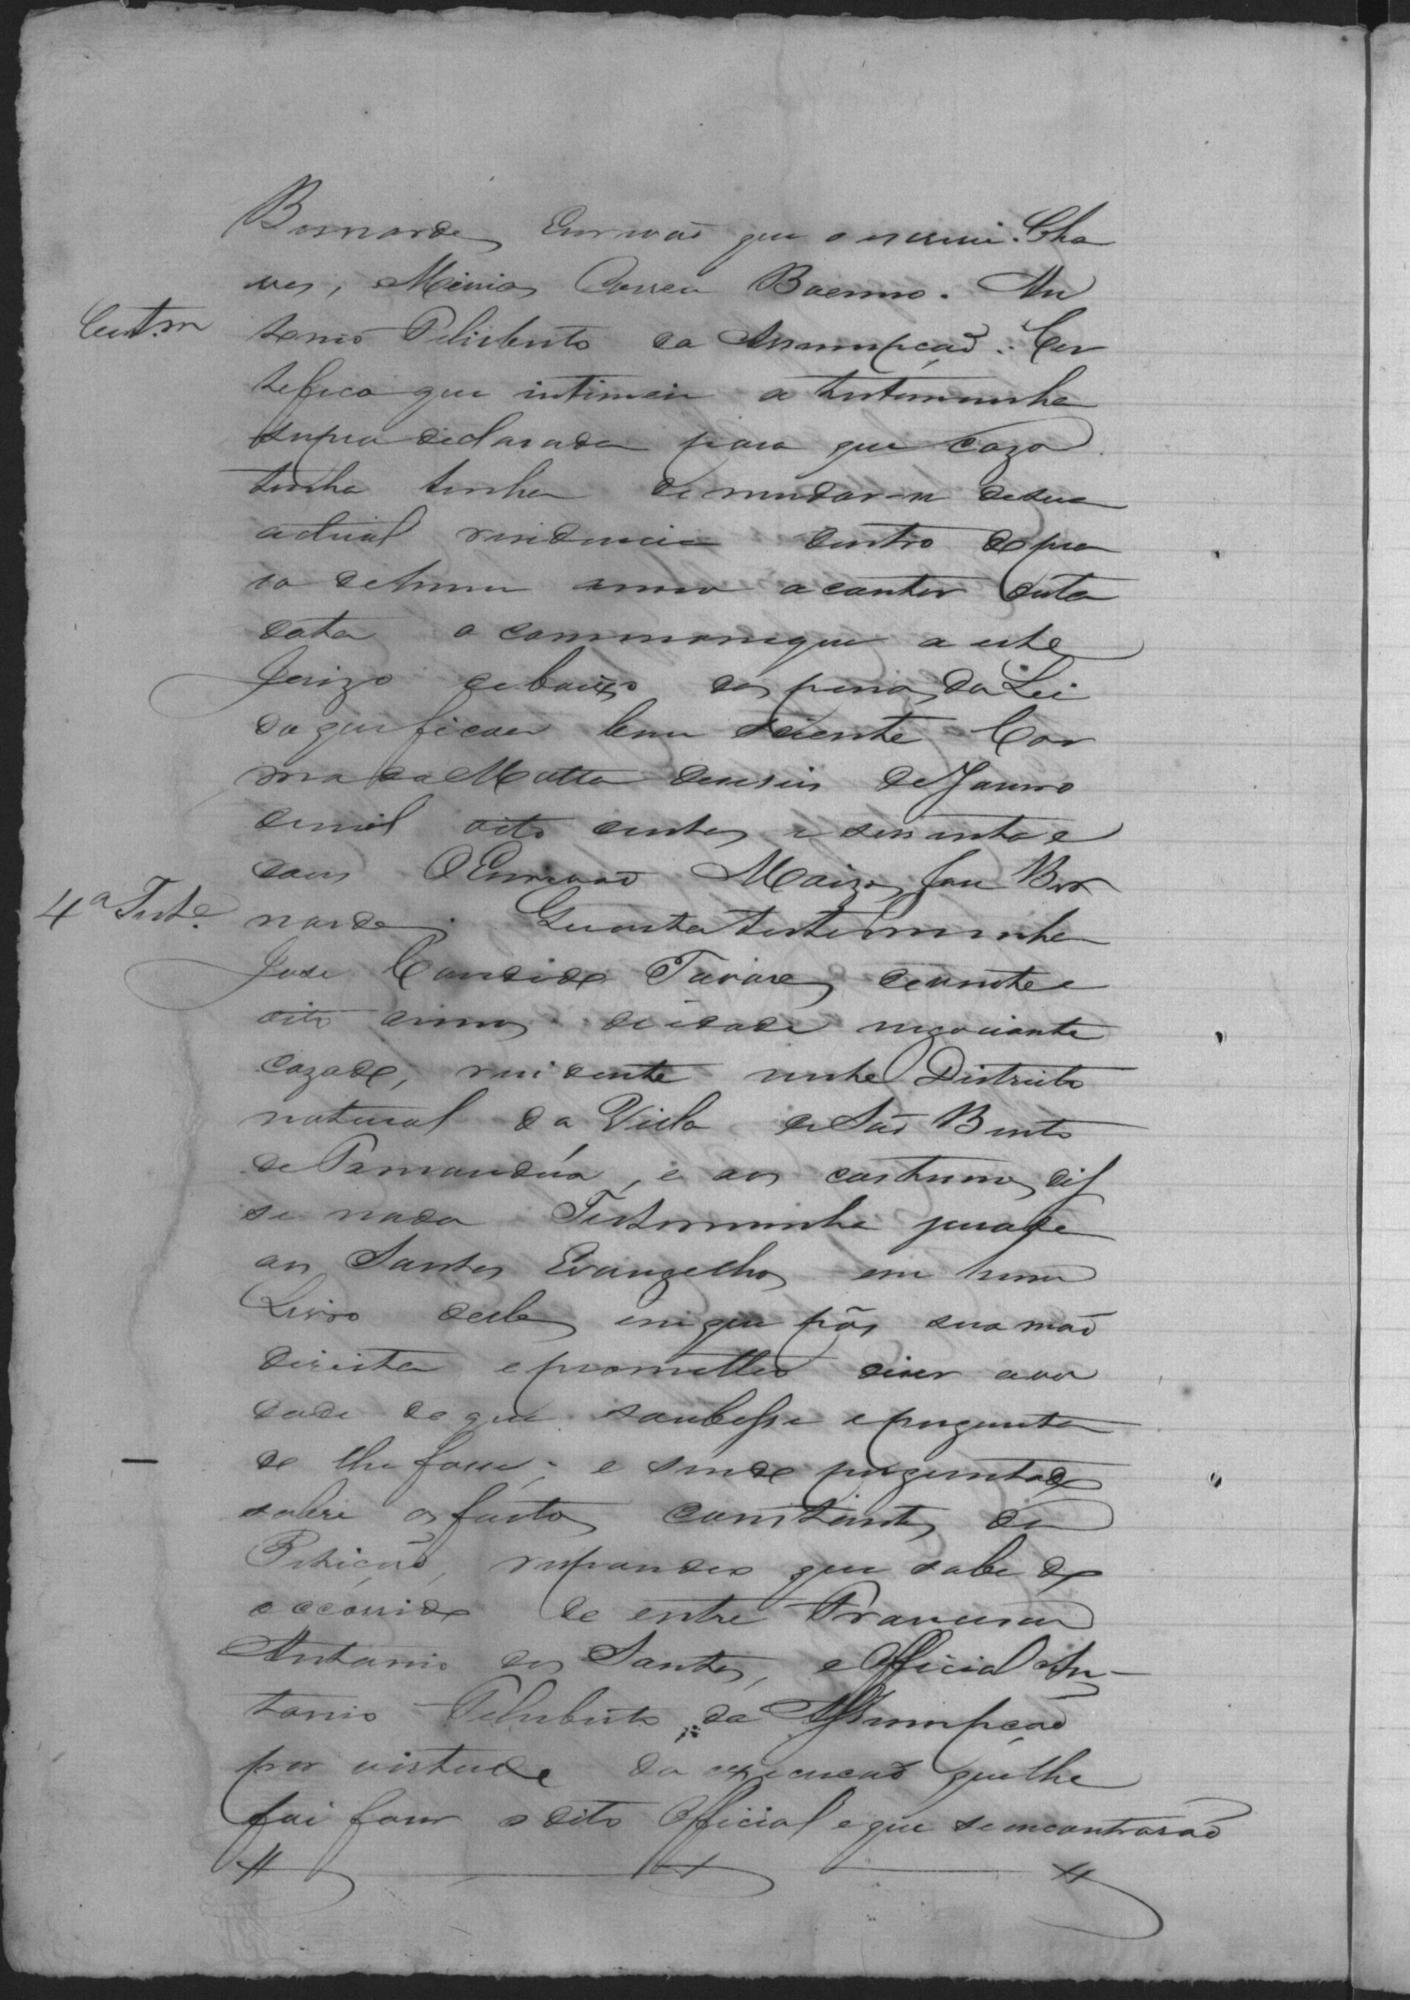 Bernardes Escrivaõ que o escrevi. Cha
ves, Messias Correa Boenno. An
Cert.m
tonio Feliberto da Assumpçaõ. Cer
tefico que intimei a testemunha
supra declarada para que cazo
tenha tenha de mudar-se de sua
actual residencia dentro de pra
so de hum anno a contar desta
data o communique a este
Juizo debaixo das penas da Lei
do que ficou bem sciente
ma da Matta deseseis de Janeiro
de mil oito centos e sessenta e
dous O Escrivaõ Moizes José Ber
4ª Teste.
nardes. Quarta testemunha
José Candido Tavares de vinte e
oito annos de idade negociante
cazado, residente neste Districto
natural da Villa de Saõ Bento
de Tamanduá, e aos costumes dis
se nada Testemunha jurada
aos Santos Evangelhos em hum
Livro delles em que pôs sua maõ
direita e prometteo diser a ver
dade do que soubesse e pergunta
do lhe fosse; e sendo perguntado
sobre os factos constantes da
Petiçaõ, respondeo que sabe do
occorrido de entre Francisco
Antonio dos Santos, e Official An-
tonio Feliberto da Assumpçaõ
por virtude da execuçaõ que lhe
foi faser o dito Official e que se encontraraõ